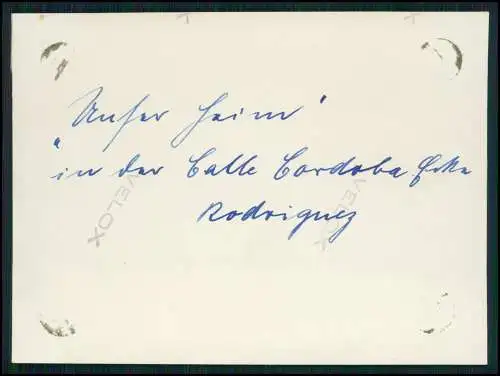 „Unser Heim"
in der Calle Cordoba Ecke
Rodriguez
VELOX
VELOX